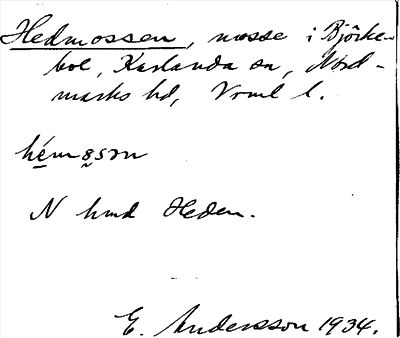 Hedmossen, mosse i Björke-
bol, Karlanda sn, Nord-
marks hd, Vrml l.
hémɷsɔn
N hmd Heden.
E. Andersson 1934.